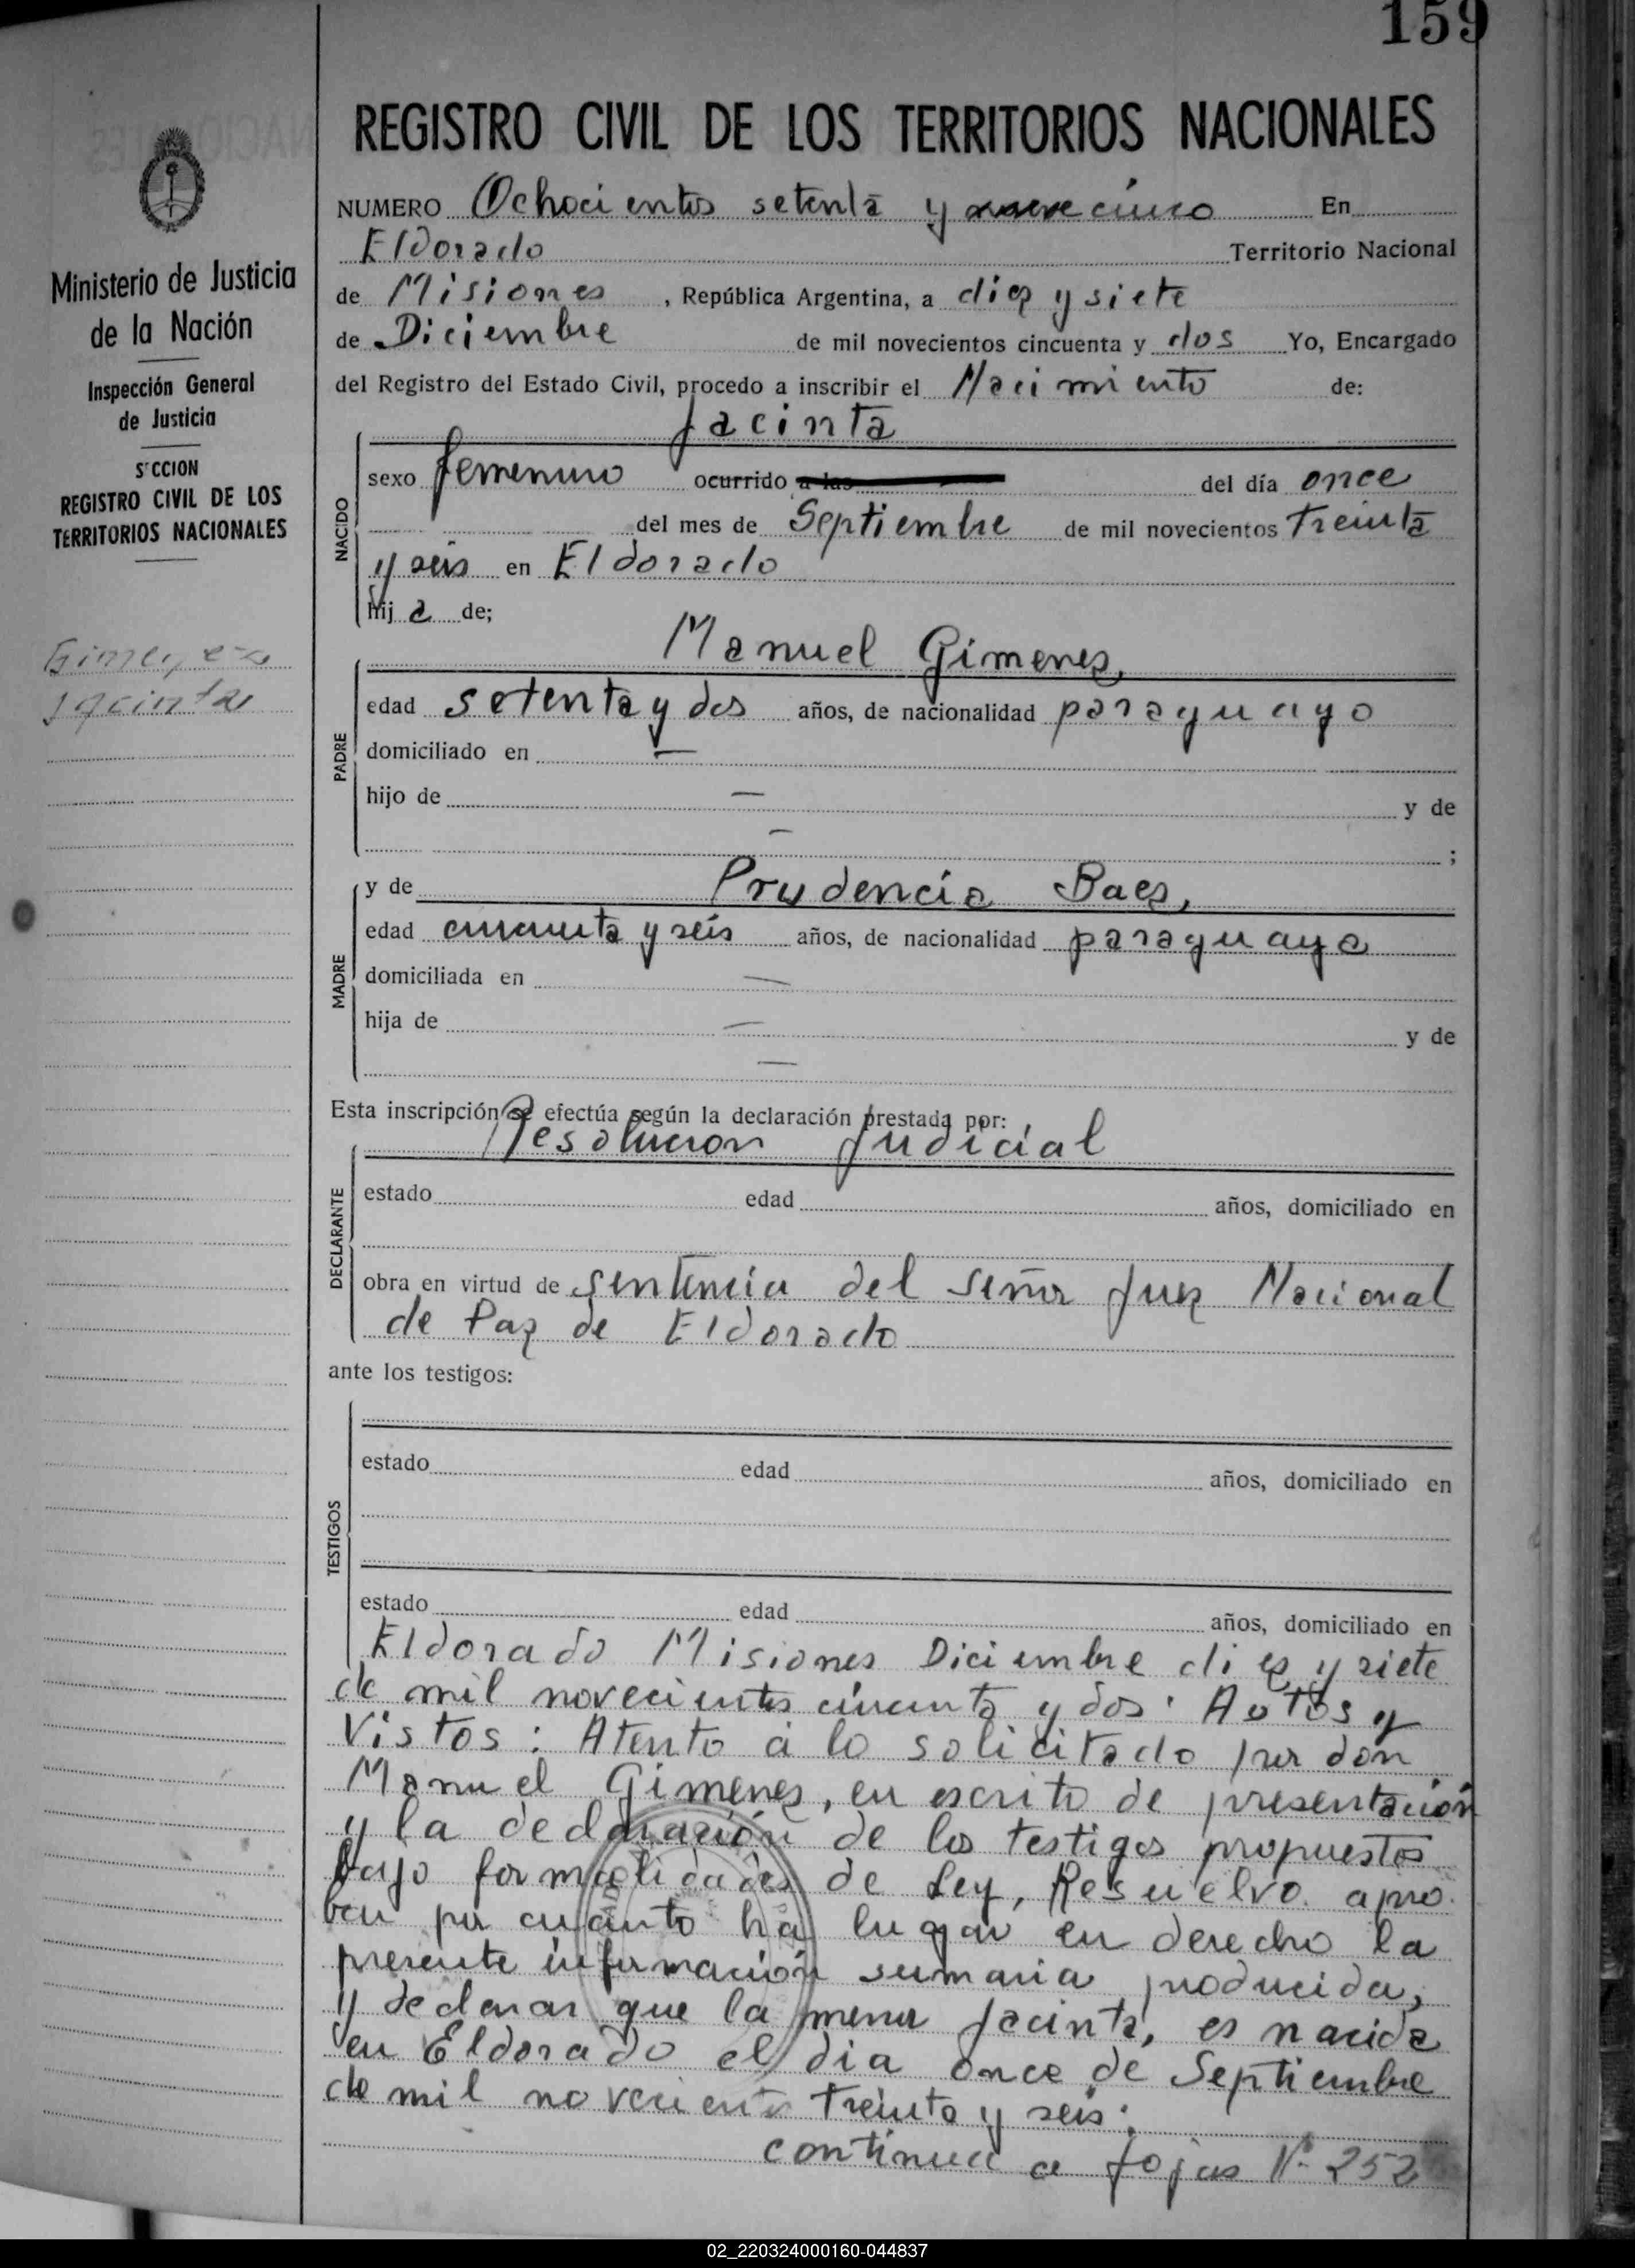 159
REGISTRO CIVIL DE LOS TERRITORIOS NACIONALES
Ministerio de Justicia
de la Nación
Inspección General
de Justicia
S'CCION
REGISTRO CIVIL DE LOS
TERRITORIOS NACIONALES
Gimenez
Jacinta
NUMERO Ochocientos setenta y nueve cinco En
Eldorado Territorio Nacional
de Misiones, República Argentina, a diez y siete
de Diciembre de mil novecientos cincuenta y dos Yo, Encargado
del Registro del Estado Civil, procedo a inscribir el Nacimiento de:
Jacinta
NACIDO
sexo femenino ocurrido a las del día once
del mes de Septiembre de mil novecientos treinta
y seis en Eldorado
hij a de;
Manuel Gimenez,
PADRE
edad setenta y dos años, de nacionalidad paraguayo
domiciliado en —
hijo de — y de
— ;
MADRE
y de Prudencia Baez,
edad cincuenta y seis años, de nacionalidad paraguaya
domiciliada en —
hija de — y de
—
Esta inscripción se efectúa según la declaración prestada por:
Resolucion Judicial
DECLARANTE
estado edad años, domiciliado en
obra en virtud de sentencia del Señor Juez Nacional
de Paz de Eldorado
ante los testigos:
TESTIGOS
estado edad años, domiciliado en
estado edad años, domiciliado en
Eldorado Misiones Diciembre diez y siete
de mil novecientos cincuenta y dos: Autos y
Vistos: Atento a lo solicitado por don
Manuel Gimenez, en escrito de presentación
y la declaración de los testigos propuestos
bajo formalidades de Ley, Resuelvo apro
ban por cuanto ha lugar en derecho la
presente información sumaria producida,
y declarar que la menor Jacinta, es nacida
en Eldorado el dia once de Septiembre
de mil novecientos treinta y seis:
continua a fojas Nº 252
02_220324000160-044837